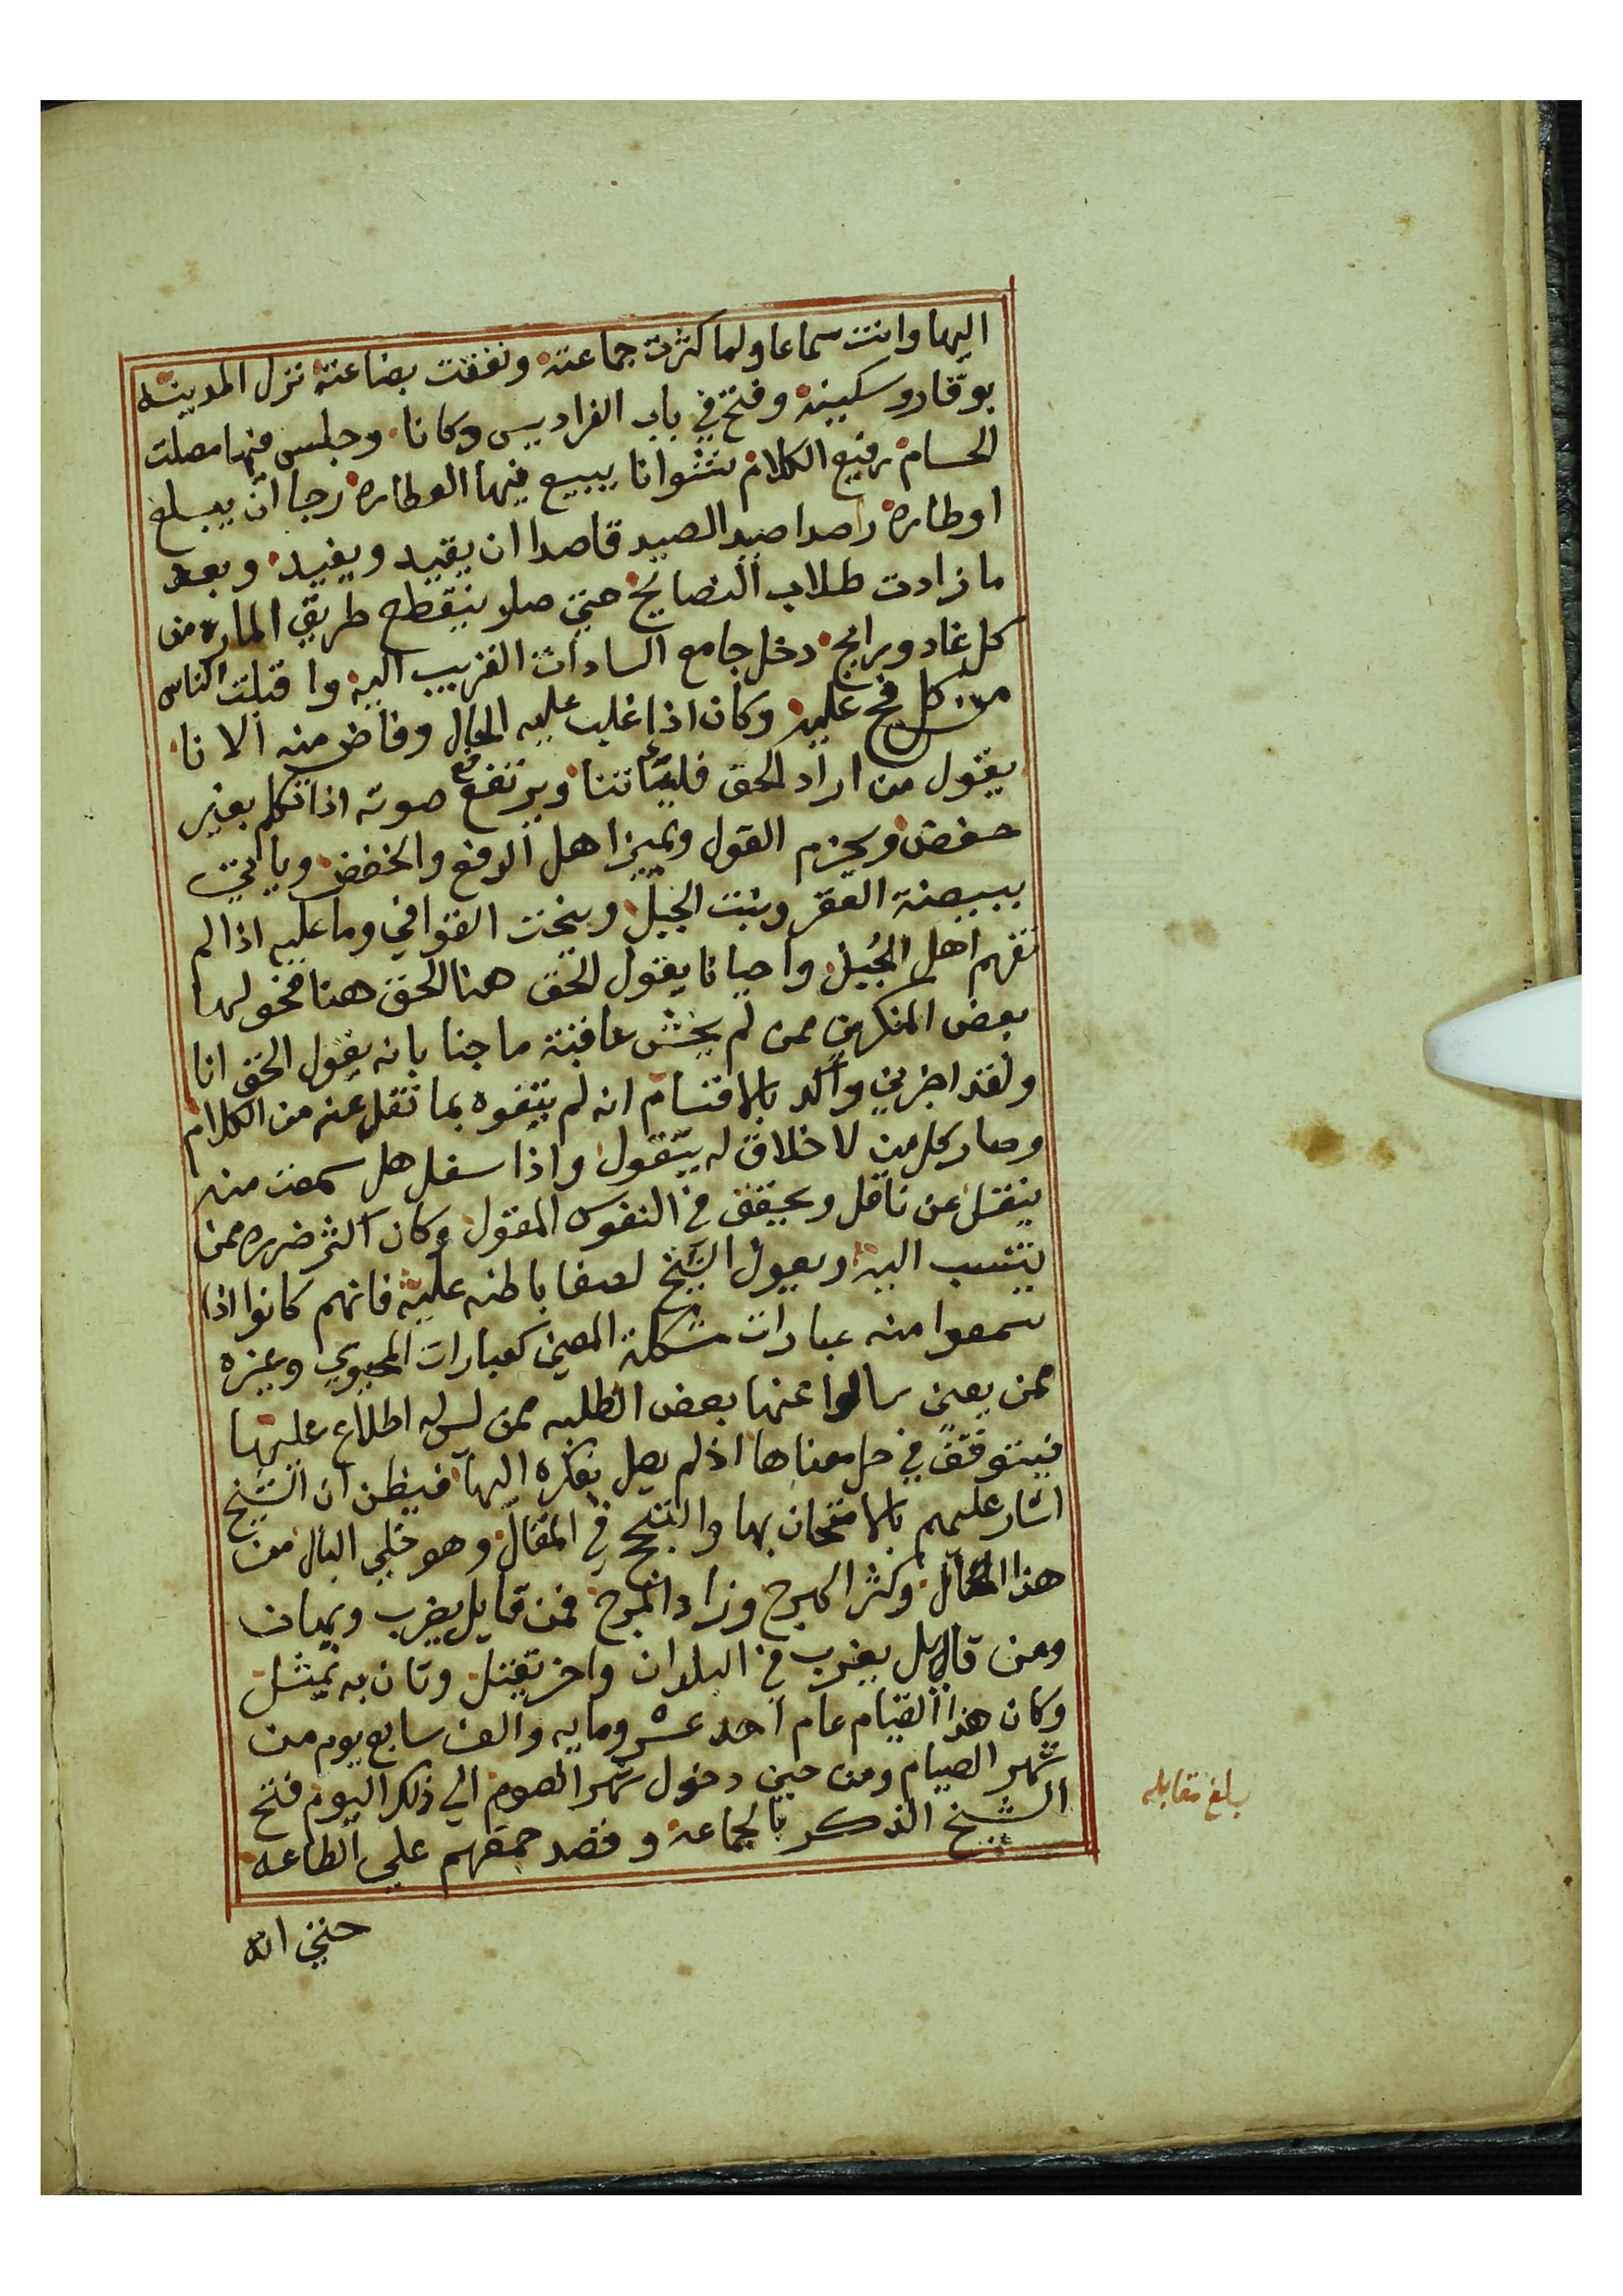 اليها وانت سماعا ولما كثرت جماعته ونفقت بضاعته نزل المدينه
بوقار وسكينه وفتح في باب الفراديس دكانا وجلس فيها مصلت
الحسام رفيع الكلام نشوانا يبيع فيها العطاره رجا ان يبلغ
اوطاره راصدا صيد الصيد قاصدا ان يقيد ويفيد وبعد
ما زادت طلاب النصايح حتى صار ينقطع طريق الماره من
كل غاد ورايح دخل جامع السادات القريب اليه واقبلت الناس
من كل فج عليه وكان اذا غلب عليه الحال وفاض منه الانا
يقول من اراد الحق فليأتنا ويرتفع صوته اذا تكلم بغير
خفض ويجزم القول ويميز اهل الرفع والخفض وياتي
ببيضة العقر وبنت الجبل وينحت القوافي وما عليه اذا لم
تفهم اهل الجبل واحيانا يقول الحق هنا الحق هنا فحولها
بعض المنكرين ممن لم يخش عاقبة ما جنا بانه يقول الحق انا
ولقد اخبرني وأكد بالاقسام انه لم يتفوه بما نقل عنه من الكلام
وصار كل من لا خلاق له يتقول واذا سئل هل سمعت منه
ينقل عن ناقل ويحقق في النفوس المقول وكان اكثر ضرره ممن
ينتسب اليه ويعول الشيخ لصفا باطنه عليه فانهم كانوا اذا
سمعوا منه عبارات مشكلة المعنى كعبارات المحيوي وغيره
ممن يعنى سالوا عنها بعض الطلبه ممن ليس له اطلاع عليها
فيتوقف في حل معناها اذ لم يصل بفكره اليها فيظن ان الشيخ
اشار عليهم بالامتحان بها والتبجح في المقال وهو خلي البال من
هذا الحال وكثر الهرج وزاد المرج فمن قايل يضرب ويهان
ومن قايل يغرب في البلدان واخر يقتل وثان به يمثل
وكان هذا القيام عام احد عشر ومايه والف سابع يوم من
شهر الصيام ومن حين دخول شهر الصوم الي ذلك اليوم فتح
الشيخ الذكر بالجماعه وقصد جمعهم علي الطاعه
حتى انه
بلغ مقابله